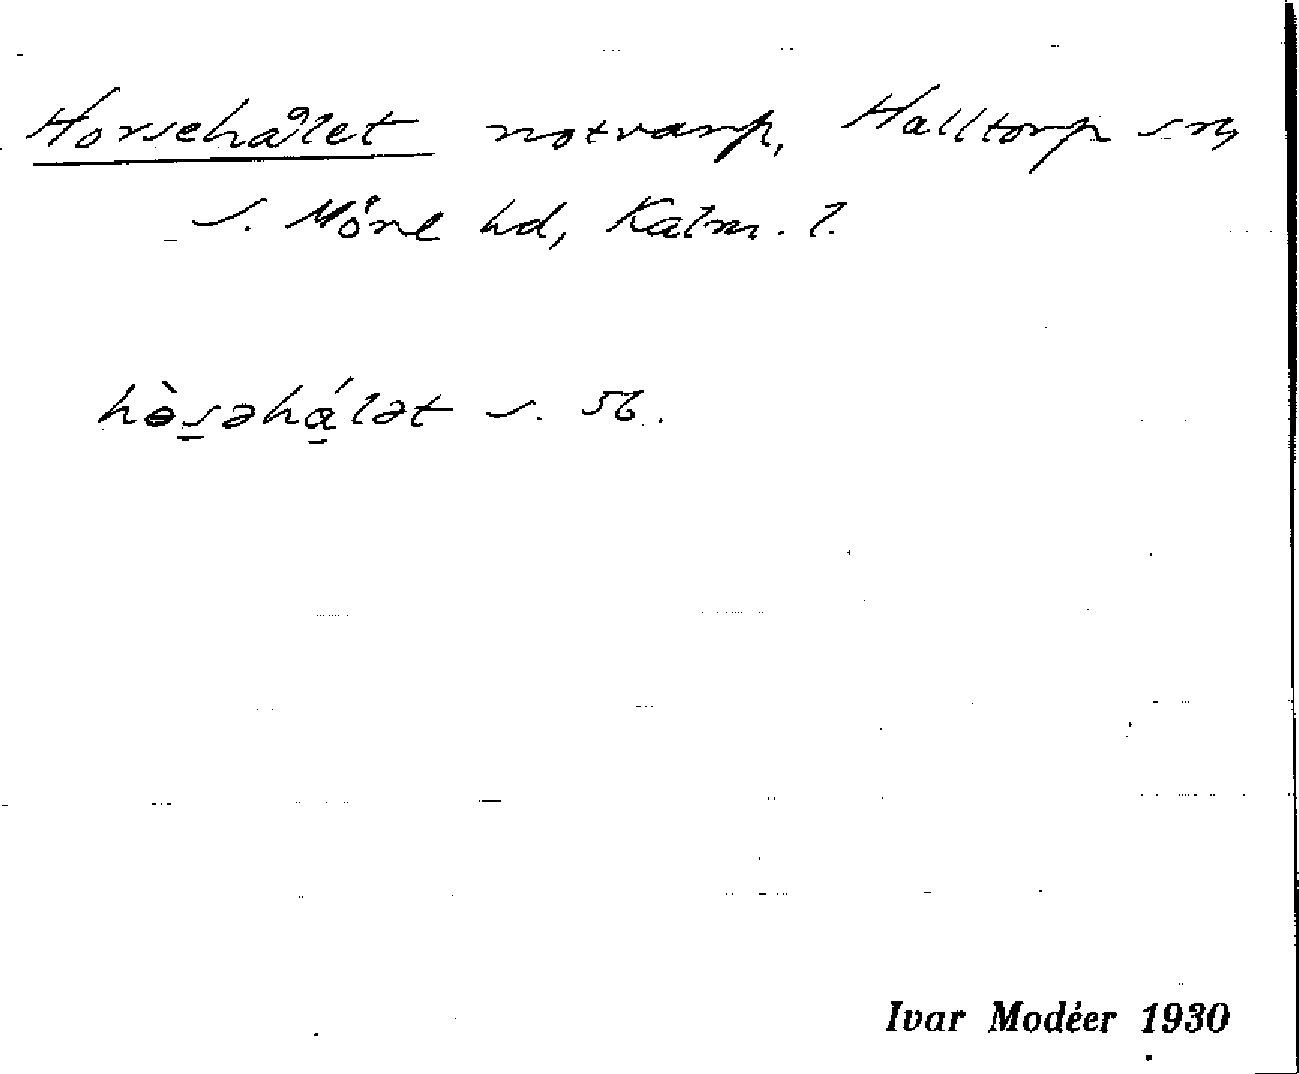 Horsehålet notvarp, Halltorp sn,
s. Möre hd, Kalm. l.
hòs̱əhá̱lət s. 56.
Ivar Modéer 1930